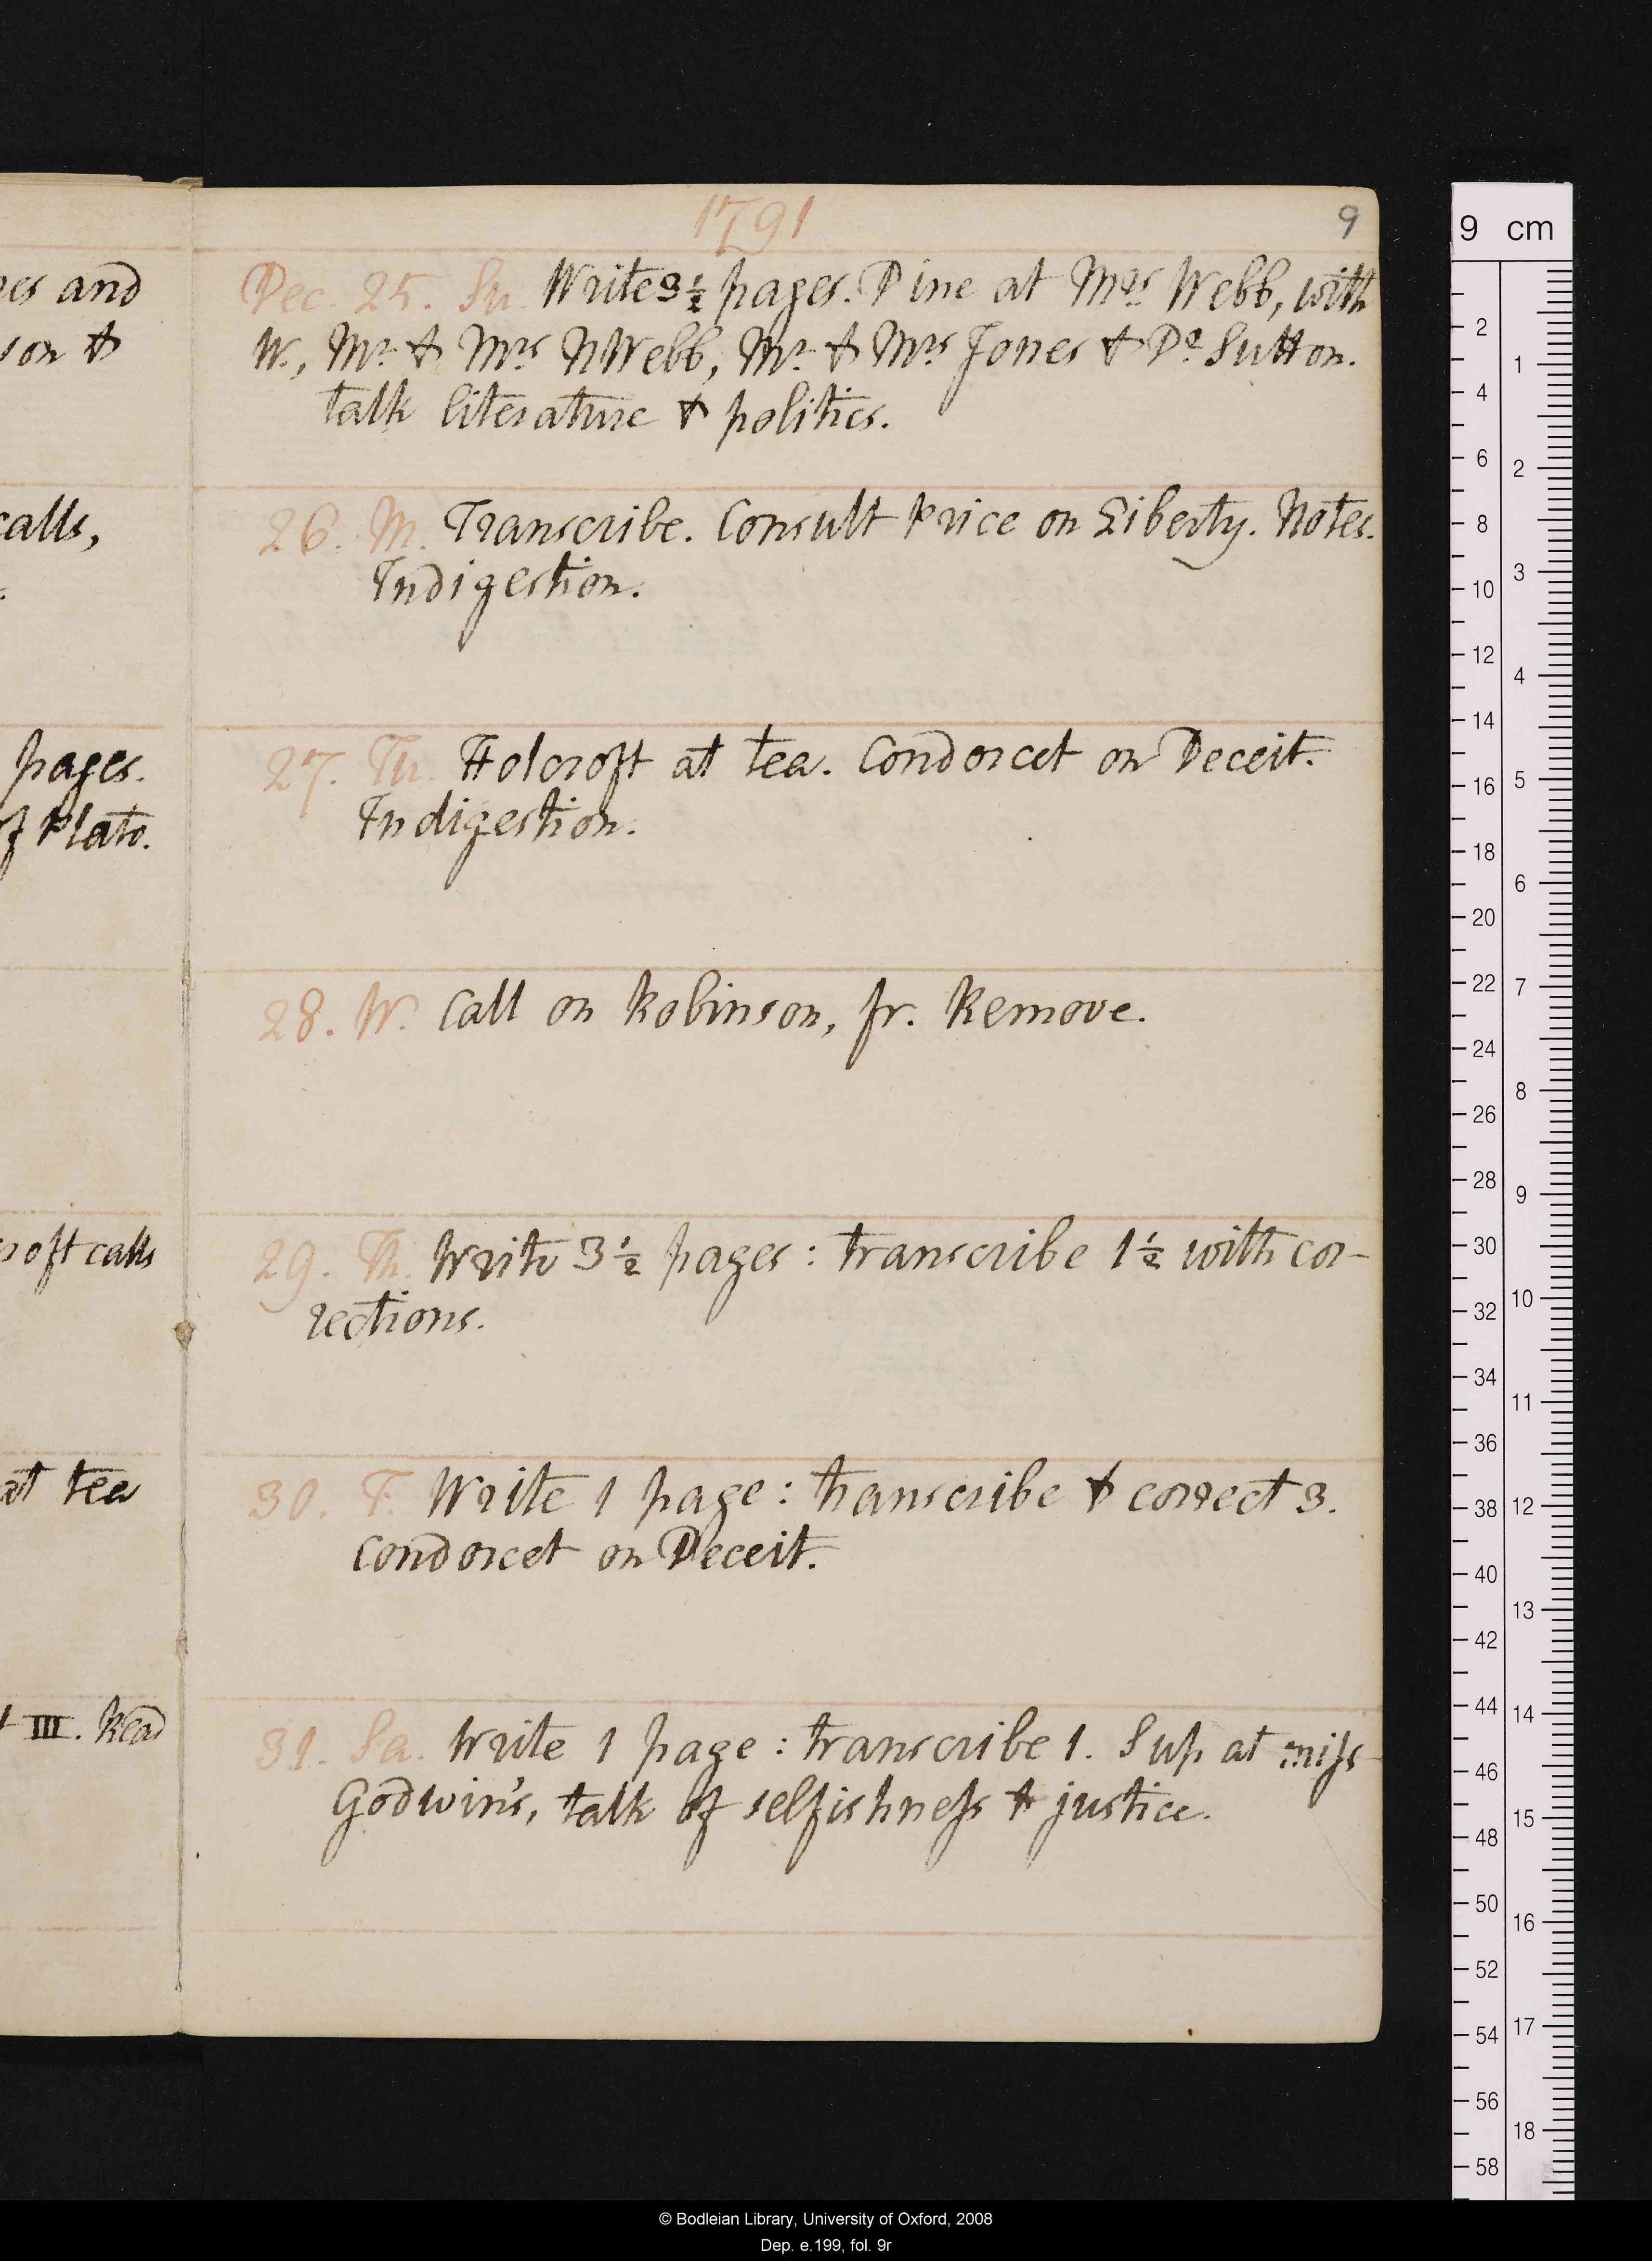 1791
9
Dec. 25. Su. Write 3½ pages. Dine at Mrs Webb, with
W., Mr & Mrs N Webb, Mr & Mrs Jones & Dr Sutton.
talk literature & politics.
26. M. Transcribe. Consult Price on Liberty. Notes.
Indigestion.
27. Tu. Holcroft at tea. Condorcet on Deceit.
Indigestion.
28. W. Call on Robinson, jr. Remove.
29. Th. Write 3½ pages: transcribe 1½ with cor-
rections.
30. F. Write 1 page: transcribe & correct 3.
Condorcet on Deceit.
31. Sa. Write 1 page: transcribe 1. Sup at miſs
Godwin's, talk of selfishneſs & justice.
and
on &
calls,
pages.
of Plato.
oft calls
at tea
III. Read
9 cm
2
4
6
8
10
12
14
16
18
20
22
24
26
28
30
32
34
36
38
40
42
44
46
48
50
52
54
56
58
1
2
3
4
5
6
7
8
9
10
11
12
13
14
15
16
17
18
© Bodleian Library, University of Oxford, 2008
Dep. e.199, fol. 9r